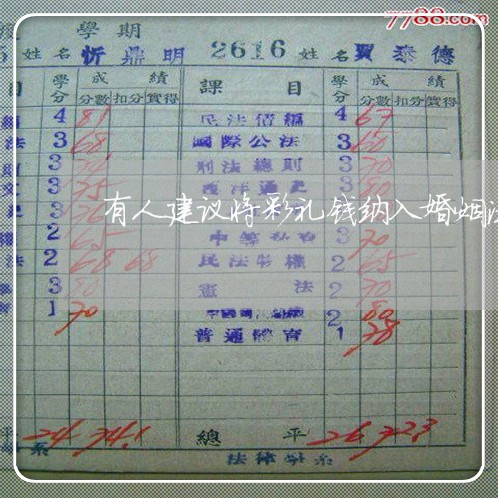 7788.com
學期
姓名忻鼎明 2616 姓名賈泰德
目 學分 成績 分數 扣分 實得 課目 學分 成績 分數 扣分 實得
4 81 民法債編 4 67
法 3 68 國際公法 3 60
3 刑法總則 3 70
3 75 3 80
有人建议将彩礼钱纳入婚姻法
2 65 3 70
法 2 68 68 民法物權 2 65
3 80 憲法 2 70
1 70 2 80
普通體育 1 78
平 24 74.1 總平 26 72.3
系 法律學系